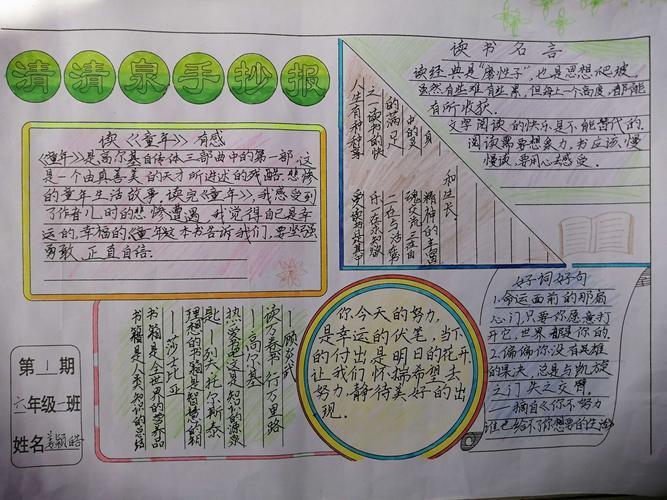 清清泉手抄报
读《童年》有感
《童年》是高尔基自传体三部曲中的第一部.这
是一个由真善美的天才所讲述的残酷.悲惨
的童年生活故事.读完《童年》,我感受到
了作者儿时的悲惨遭遇,我觉得自己是幸
运的.幸福的《童年》这本书告诉我们,要坚强
勇敢、正直自信.
读书名言
读经典是“磨性子”,也是思想爬坡,
虽然有些难有些累,但每上一个高度,都能
有所收获.
文学阅读的快乐是不能替代的.
阅读需要想象力.书应该慢
慢读.要用心去感受.
人生有种种
之一.读书的快
的满足
乐,在求知
二在与活
精神的丰富
和生长.
好词好句
1.命运面前的那扇
心门只要你愿意打
开它,世界都是你的.
2.偏偏你没有英雄
的果决,总是与凯旋
之门失之交臂.
——摘自《你不努力
谁也给不了你想要的生活》
你今天的努力,
是幸运的伏笔,当下
的付出是明日的花开
让我们怀揣希望去
努力,静待美好的出
现.
读万卷书,行万里路
——顾炎武
热爱书吧这是知识的源泉
——高尔基
理想的书籍是智慧的钥
匙——列夫·托尔斯泰
书籍是全世界的营养品
——莎士比亚
书籍是人类知识的总结
第1期
六年级一班
姓名